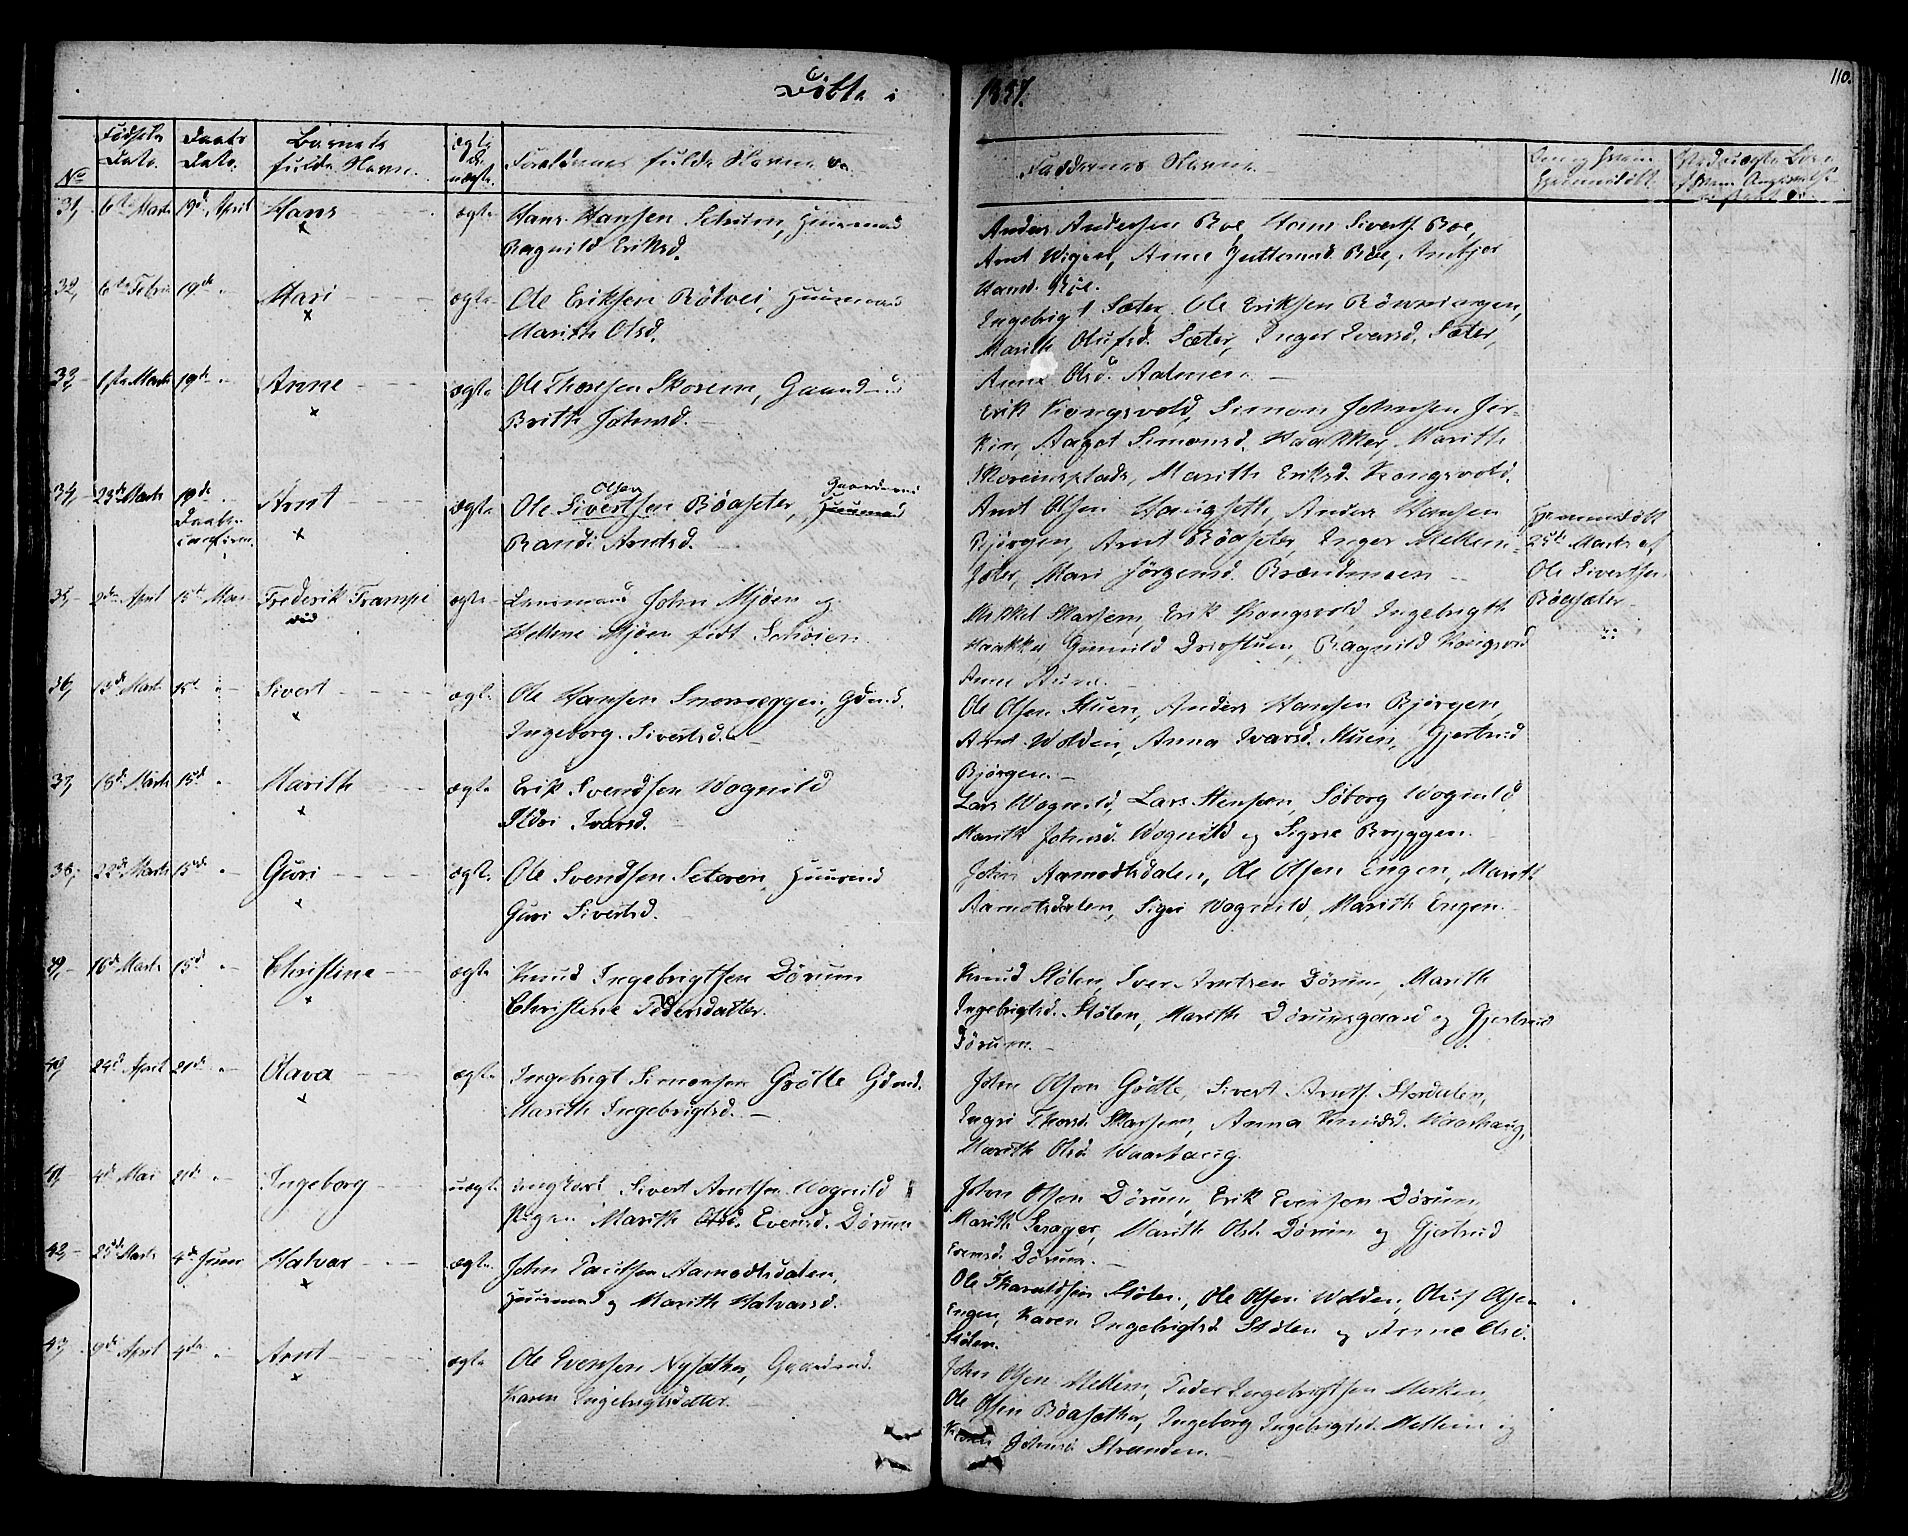 Døbte i 1857.
110.
No
Fødsels Dato.
Daabs Dato.
Barnets fulde Navn.
ægte el. uægte.
Forældrenes fulde Navne
Faddernes Navne.
31, 6te Marts 19d. April Hans ægte Hans Hansen Huusmand
Ragnild Eriksd.
Anders Andersen Boe, Sivertf. Boe,
Arnt Anne
32, 6te Febru 19de " Mari ægte Ole Eriksen Huusmand
Marith Olsd.
Engebrigt Sæter, Ole Eriksen Rönningen,
Marith Olufsd. Sæter, Inger Ivarsd. Sæter,
Anne Olsd. Aalmen.
33, 1ste Marts 19de " Anne ægte Ole Thoresen Skorem, Gaardmd
Brith Johnsd.
Erik Kongsvold, Simon Johnsen Jer-
kin, Aagot Simonsd. Haakker, Marith
Skoremsplads, Marith Eriksd. Kongsvold.
34, 23de Marts 19de Daabs Arnt ægte Ole Sivertsen Olsen Böasæter, Huusmand Gaardmand
Randi Arntsd.
Arnt Olsen Anders Hansen
Bjørgen, Arnt Böasæter, Inger Mellem-
sæter, Mari Jörgensd. Brændmoen
Hjemmedöbt
25de Marts af
Ole Sivertsen
Böasæter
35, 2den April 15de Mai Frederik Trampe ægte Lensmand John Mjöen og
Hellene Mjöen födt
Mikkel Skarsem, Erik Kongsvold, Ingebrigth
Haakker Gunnild Drivstuen, Ragnild Kongsvold
Anne Aune.
36, 13de Marts 15de " Sivert ægte Ole Hansen Gdmd.
Ingeborg Sivertsd.
Ole Olsen Stuen, Anders Hansen Bjørgen,
Arnt Wolden, Anna Ivarsd. Stuen, Gjertrud
Bjørgen.
37, 18de Marts 15de " Marith ægte Erik Svendsen Wognild
Ildri Ivarsd.
Lars Wognild, Lars Stensen, Söborg Wognild
Marith Johnsd. Wognild og Sigrie Bryggen.
38, 22de Marts 15de " Guri ægte Ole Svendsen Seteren, Huusmd
Guri Sivertsd.
John Aamodtsdalen, Ole Olsen Engen, Marith
Aamotsdalen, Sigri Wognild, Marith Engen.
39, 16de Marts 15de " Christine ægte Knud Ingebrigtsen Dörum
Christine Pedersdatter.
Knud Stölen, Iver Arntsen Dörum, Marith
Ingebrigtsd. Stölen, Marith Dörumsgaard og Gjertrud
Dörum.
40, 24d April 21de " Olava ægte Ingebrigt Simonsen Grötte Gdmd.
Marith Ingebrigtsd.
John Olsen Grötte, Sivert Arntf. Stordalen,
Engri Thorsd. Skarsem, Anna Knudsd. Haarhaug,
Marith Olsd. Haarhaug.
41, 4de Mai 21de " Ingeborg uægte ungkarl Sivert Arntsen Wognild
Pigen Marith Olsd. Evensd. Dörum
John Olsen Dörum, Erik Evensen Dörum
Marith Marith Olsd. Dörum og Gjertrud
Evensd. Dörum.
42, 25de Marts 4de Juni Halvar ægte John Aamodtsdalen,
Huusmand og Marith Halvarsd.
Ole Haraldsen Stölen, Ole Olsen Wolden, Oluf Olsen
Engen, Karen Ingebrigtsd. Stölen og Anne Olsd.
Stölen.
43, 9de April 4de " Arnt ægte Ole Evensen Nysæther, Gaardmd.
Karen Ingebrigtsdatter.
John Olsen Mellem, Peder Ingebrigtsen
Ole Olsen Böasæther, Ingeborg Ingebrigtsd. Mellem og
Johnsd. Stranden.